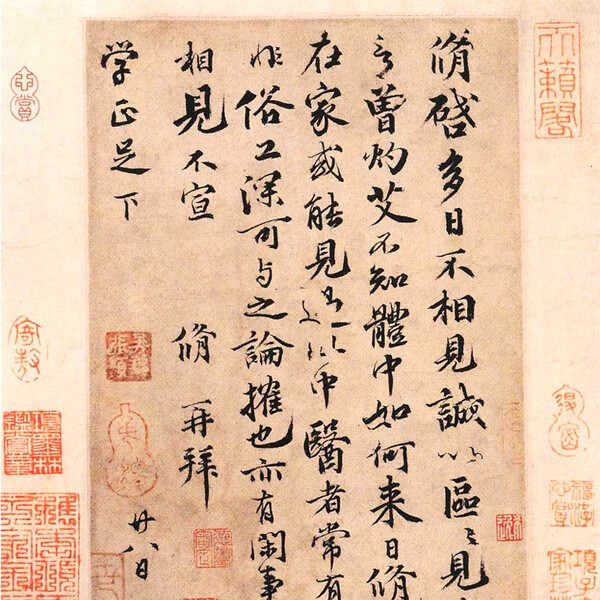 脩啓多日不相見誠以區〻見
言曾灼艾不知體中如何来日脩
在家或能見過此中醫者常有
非俗工深可与之論搉也亦有閑事
相見不宣 脩再拜
廿八日
学正足下
天籟閣